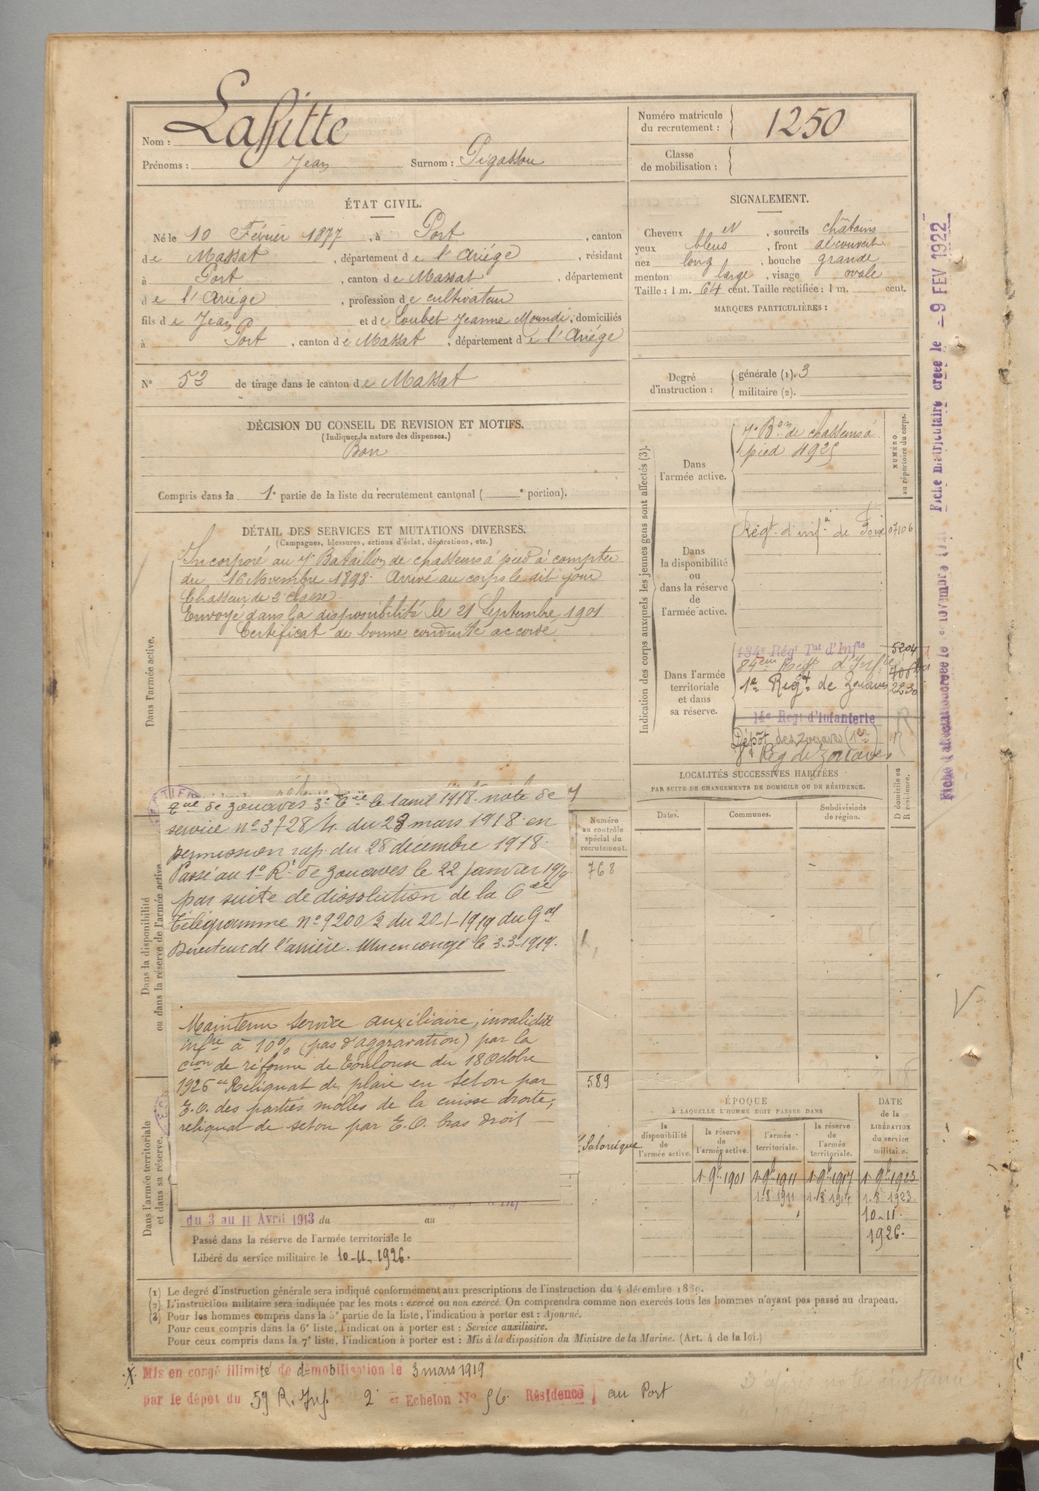 Nom : Laffitte
Prénoms : Jean Surnom : Pigassou
Numéro matricule du recrutement : 1250
Classe de mobilisation :
ÉTAT CIVIL.
Né le 10 Février 1877, à Port, canton
de Massat, département de l'Ariége, résidant
à Port, canton de Massat, département
de l'Ariége, profession de cultivateur
fils de Jean et de Loubet Jeanne Mounde, domiciliés
à Port, canton de Massat, département de l'Ariége
N° 53 de tirage dans le canton de Massat
SIGNALEMENT.
Cheveux N, sourcils châtains
yeux bleus, front découvert
nez long, bouche grande
menton large, visage ovale
Taille : 1 m. 64 cent. Taille rectifiée : 1 m. cent.
MARQUES PARTICULIÈRES :
Degré d'instruction : générale (1). 3
militaire (2).
DÉCISION DU CONSEIL DE REVISION ET MOTIFS.
(Indiquer la nature des dispenses.)
Bon
Compris dans la 1e partie de la liste du recrutement cantonal ( e portion).
DÉTAIL DES SERVICES ET MUTATIONS DIVERSES.
(Campagnes, blessures, actions d'éclat, décorations, etc.)
Dans l'armée active.
Incorporé au 7e Bataillon de chasseurs à pied à compter
du 16 Novembre 1898. Arrivé au corps le dit jour
Chasseur de 2e classe.
Envoyé dans la disponibilité le 21 Septembre 1901
Certificat de bonne conduite accordé
Dans la disponibilité ou dans la réserve de l'armée active.
que de zouaves 3e Cie le 1 avril 1918. note de
service n° 3728/4 du 23 mars 1918. en
permission rap. du 28 decembre 1918.
Passé au 1er Rt de zouaves le 22 janvier 1919
par suite de dissolution de la 6e
télégramme n° 9200/2 du 20-1-1919 du Gal
Directeur de l'arrière. Mis en congé le 3.3.1919.
Maintenu service auxiliaire, invalidité
infre à 10% (pas d'aggravation) par la
Cion de réforme de Toulouse du 18 Octobre
1926 Reliquat de plaie en seton par
E.O. des parties molles de la cuisse droite;
reliquat de seton par E.O. bras droit
Dans l'armée territoriale et dans sa réserve.
du 3 au 11 Avril 1913 du au
Passé dans la réserve de l'armée territoriale le
Libéré du service militaire le 10-11-1926.
Numéro au contrôle spécial du recrutement.
768
589
Salonique
Indication des corps auxquels les jeunes gens sont affectés (3).
NUMÉRO au répertoire du corps.
Dans l'armée active.
7e Bon de chasseurs à
pied 4925
Dans la disponibilité ou dans la réserve de l'armée active.
Régt d'infie de Foix 07106
Dans l'armée territoriale et dans sa réserve.
134e Régt Tal d'Infie 5204
84eme Regt d'Infie
1er Regt de Zouaves 2230
14e Regt d'Infanterie
Dépôt des Zouaves (1er)
Rég de Zouaves
LOCALITÉS SUCCESSIVES HABITÉES
PAR SUITE DE CHANGEMENTS DE DOMICILE OU DE RÉSIDENCE.
Dates. Communes. Subdivisions de région. D domicile ou R résidence.
ÉPOQUE
À LAQUELLE L'HOMME DOIT PASSER DANS
la disponibilité de l'armée active. la réserve de l'armée active. l'armée territoriale. la réserve de l'armée territoriale.
DATE de la LIBÉRATION du service militaire.
1 9bre 1901 1 9bre 1911 1 9bre 1917 1 9bre 1923
1.8 1911 1.8 1917 1.8 1923
10-11
1926.
(1) Le degré d'instruction générale sera indiqué conformément aux prescriptions de l'instruction du 4 décembre 1889.
(2) L'instruction militaire sera indiquée par les mots : exercé ou non exercé. On comprendra comme non exercés tous les hommes n'ayant pas passé au drapeau.
(3) Pour les hommes compris dans la 5e partie de la liste, l'indication à porter est : Ajourné.
Pour ceux compris dans la 6e liste, l'indication à porter est : Service auxiliaire.
Pour ceux compris dans la 7e liste, l'indication à porter est : Mis à la disposition du Ministre de la Marine. (Art. 4 de la loi.)
Mis en congé illimité de démobilisation le 3 mars 1919
par le dépôt du 59 R. Inf. 2e Echelon N° 56 Résidence au Port
Fiche matriculaire créée le -9 FEV 1922